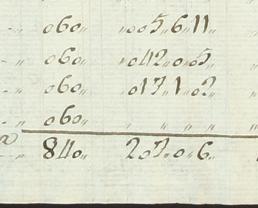 „ „060„ „„05„6„11„
„ „060„ „042„0„5„
„ „060„ „017„1„02„
„060„ „ „ „ „
„ 840„ 207„0„6„